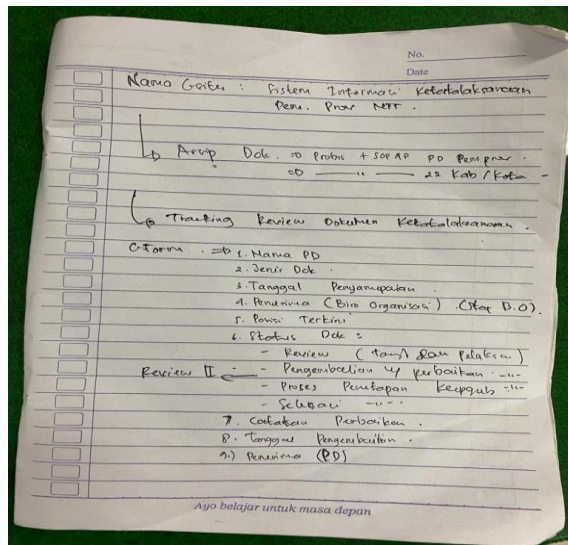 No.
Date
Nama Gsites : Sistem Informasi Ketatalaksanaan
Pem. Prov NTT .
Arsip Dok. => Probis + SOP AP PD Pemprov .
=> —— " —— 22 Kab / Kota -
Tracking Review Dokumen Ketatalaksanaan .
G-Form . => 1. Nama PD
2. Jenis Dok .
3. Tanggal Penyampaian .
4. Penerima ( Biro Organisasi ) . (Staf B.O).
5. Posisi Terkini
6. Status Dok :
- Review ( tanggal dan Pelaksana )
Review II - Pengembalian u/ perbaikan . -"-
- Proses Penetapan Kepgub -"-
- Selesai -"-
7. Catatan Perbaikan .
8. Tanggal Pengembalian .
9.) Penerima (PD)
Ayo belajar untuk masa depan